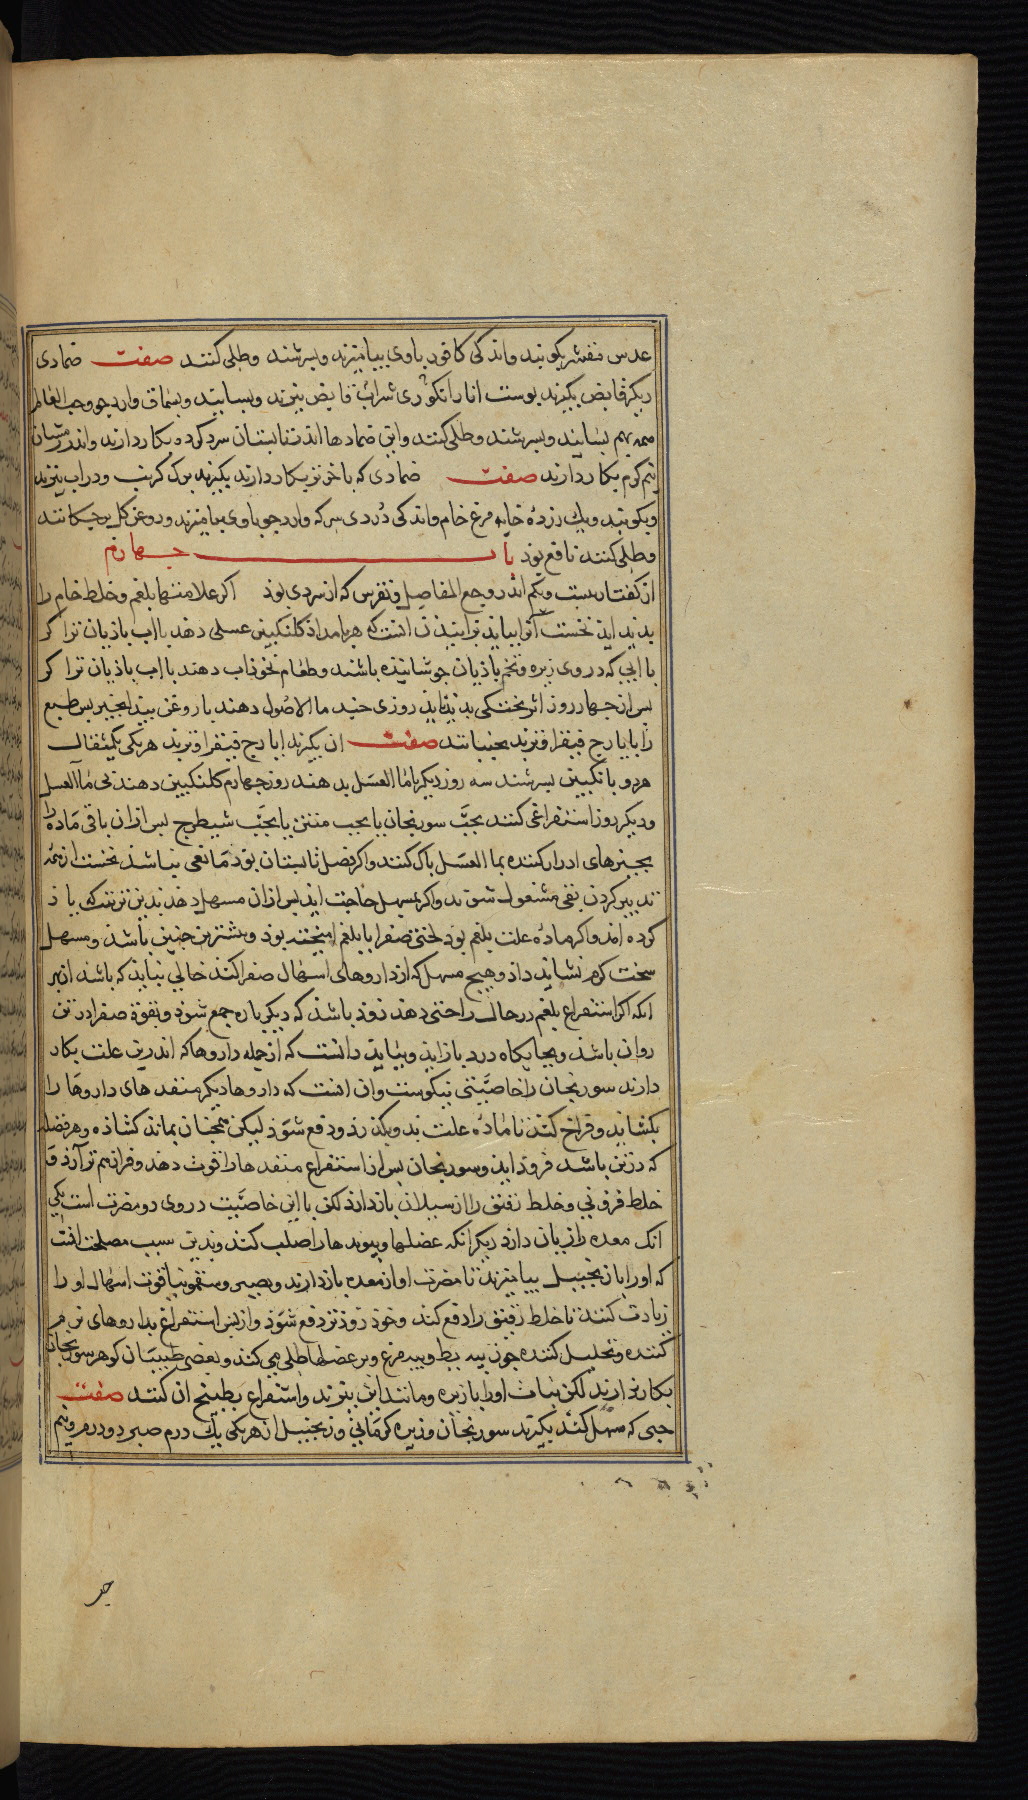 عدس مقشر بکوبند واندکی کافور باوی بیامیزند وبسرشند وطلی کنند صفت ضمادی
دیگر قابض بگیرند پوست انار انگوری شراب قابض بپزند وبسایند وسماق وارد جو وحب الغار
همه بهم بسایند وبسرشند وطلی کنند واین ضمادها اندر تابستان سرد کرده بکار دارند واندر زمستان
نیم گرم بکار دارند صفت ضمادی که باخر تر بکار دارند بگیرند برک کرنب ودر اب بپزند
وبکوبند ویک زرده خایه مرغ خام واندکی دردی سرکه وارد جو باوی بیامیزند وروغن کل برچکانند
وطلی کنند نافع بوذ باب جهارم
از کفتار بیست ویکم اندر وجع المفاصل ونقرس که از سردی بوذ اکر علامتها بلغم وخلط خام را
بدید اید نخست آنرا بباید پزانیدن ان انست که هر بامداد کلنکبین عسلی دهند بااب باذیان تر اکر
باابی که در وی زیره وتخم باذیان جوشانیده باشند وطعام نخوذاب دهند بااب باذیان تر اکر
پس از جهار روز اثر پختکی بدیذ اید روزی چند ما الاصول دهند با روغن بید انجیر پس طبع
را بایارج فیقرا وتربد بجنبانند صفت ان بگیرند ایارج فیقرا وتربد هریکی یک مثقال
هردو بانکبین بسرشند سه روز دیکر باما العسل بدهند روز جهارم کلنکبین دهند بی ما العسل
ودیکر روز استفراغی کنند بحب سورنجان یا بحب منتن یا بحب شیطرج پس ازان باقی ماده را
بجیزهای ادرار کننده بما العسل پاک کنند واکر فصل تابستان بوذ مانعی نباشذ نخست از همه
تدبیر کردن بقی مشغول شوند واکر بمسهل حاجت اید پس ازان مسهل دهند بدین ترتیب که یاذ
کرده امد واکر ماده علت بلغم بوذ لختی صفرا با بلغم امیخته بوذ وبیشترین جنین باشذ ومسهل
سخت کرم نشاید داذ وهیج مسهل که از داروهای اسهال صفرا کند خالی نباید که باشذ از بهر
انکه اکر استفراغ بلغم در حال راحتی دهذ زوذ باشذ که دیکرباره جمع شوذ وبقوة صفرا در تن
روان باشذ وبجایکاه درد باز اید وبباید دانست که از جمله داروها که اندرین علت بکار
دارند سورنجان را خاصیتی نیکوست وان انست که داروها دیکر منفذ های داروها را
بکشاید وفراخ کند تا ماده علت بدو بکذرد ودفع شوذ لیکن همجنان بماند کشاذه وهر فضله
که در تن باشد فروذ اید وسورنجان پس از استفراغ منفذها را قوت دهذ وفراهم تر آرذ وا
خلط فزونی وخلط رقیق را از سیلان بازدارذ لکن بااین خاصیت در وی دو مضرت است یکی
انک معده را زیان دارذ دیکر انکه عضلها وپیوندها را صلب کند وبدین سبب مصلحت انست
که اورا با زنجبیل بیامیزند تا مضرت او از معده بازدارند وبصبر وسقمونیا قوت اسهال او را
زیادت کنند تا خلط رقیق را دفع کند وخوذ زوذتر دفع شوذ وازپس استفراغ بداروهای نرم
کننده وتحلیل کننده جون پیه بط وپیه مرغ وبر عضلها طلی می کنند وبعضی طبیبان کوهر سورنجان
بکار ندارند لکن نبات اورا با زیره ومانند این بپزند واستفراغ بطبیخ ان کنند صفت
حبی که سهل کند بگیرند سورنجان وزیره کرمانی وزنجبیل از هریکی یک درم صبر دودرم ونیم